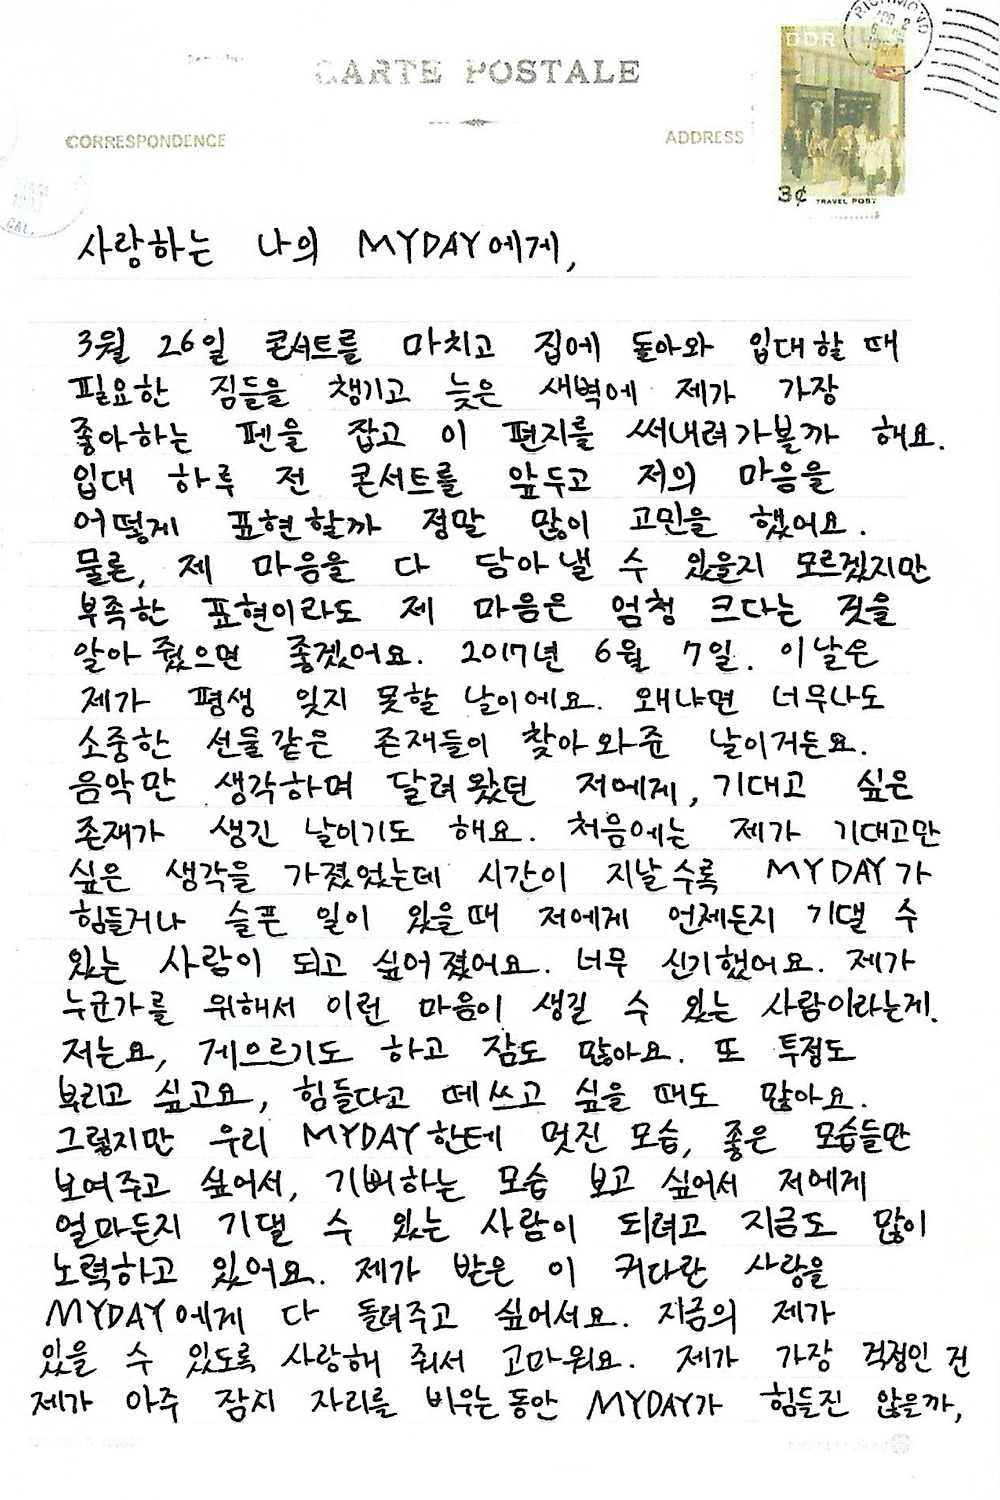 RICHMOND
DDR
CARTE POSTALE
CORRESPONDENCE
ADDRESS
3¢ TRAVEL POST
CAL.
사랑하는 나의 MYDAY에게,
3월 26일 콘서트를 마치고 집에 돌아와 입대할 때
필요한 짐들을 챙기고 늦은 새벽에 제가 가장
좋아하는 펜을 잡고 이 편지를 써내려가볼까 해요.
입대 하루 전 콘서트를 앞두고 저의 마음을
어떻게 표현할까 정말 많이 고민을 했어요.
물론, 제 마음을 다 담아낼 수 있을지 모르겠지만
부족한 표현이라도 제 마음은 엄청 크다는 것을
알아줬으면 좋겠어요. 2017년 6월 7일. 이날은
제가 평생 잊지 못할 날이에요. 왜냐면 너무나도
소중한 선물같은 존재들이 찾아와준 날이거든요.
음악만 생각하며 달려왔던 저에게, 기대고 싶은
존재가 생긴 날이기도 해요. 처음에는 제가 기대고만
싶은 생각을 가졌었는데 시간이 지날수록 MYDAY가
힘들거나 슬픈 일이 있을때 저에게 언제든지 기댈 수
있는 사람이 되고 싶어졌어요. 너무 신기했어요. 제가
누군가를 위해서 이런 마음이 생길 수 있는 사람이라는게.
저는요, 게으르기도 하고 잠도 많아요. 또 투정도
부리고 싶고요, 힘들다고 떼쓰고 싶을 때도 많아요.
그렇지만 우리 MYDAY한테 멋진 모습, 좋은 모습들만
보여주고 싶어서, 기뻐하는 모습 보고 싶어서 저에게
얼마든지 기댈 수 있는 사람이 되려고 지금도 많이
노력하고 있어요. 제가 받은 이 커다란 사랑을
MYDAY에게 다 돌려주고 싶어서요. 지금의 제가
있을 수 있도록 사랑해 줘서 고마워요. 제가 가장 걱정인 건
제가 아주 잠시 자리를 비우는동안 MYDAY가 힘들진 않을까,